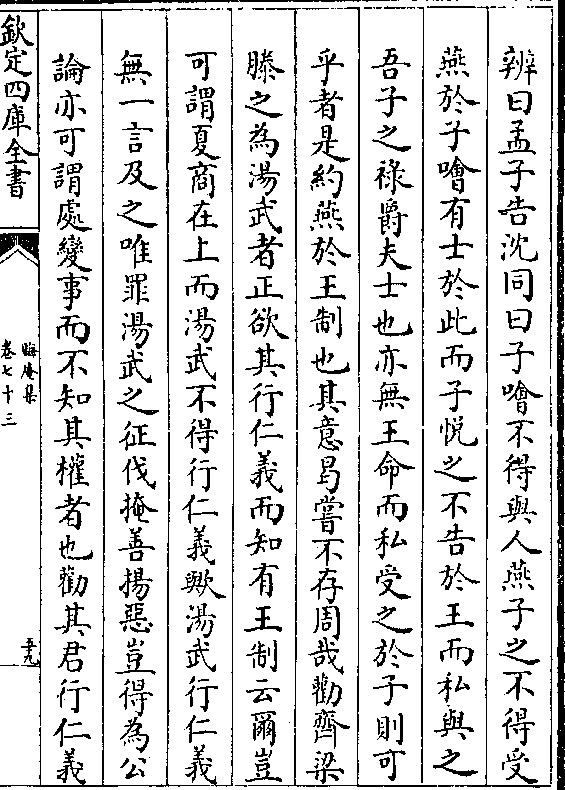 辨曰孟子告沈同曰子噲不得與人燕子之不得受
燕於子噲有士於此而子悅之不告於王而私與之
吾子之祿爵夫士也亦無王命而私受之於子則可
乎者是約燕於王制也其意曷嘗不存周哉勸齊梁
滕之為湯武者正欲其行仁義而知有王制云爾豈
可謂夏商在上而湯武不得行仁義歟湯武行仁義
無一言及之唯罪湯武之征伐掩善揚惡豈得為公
論亦可謂處變事而不知其權者也勸其君行仁義
欽定四庫全書
晦庵集
卷七十三
五十九